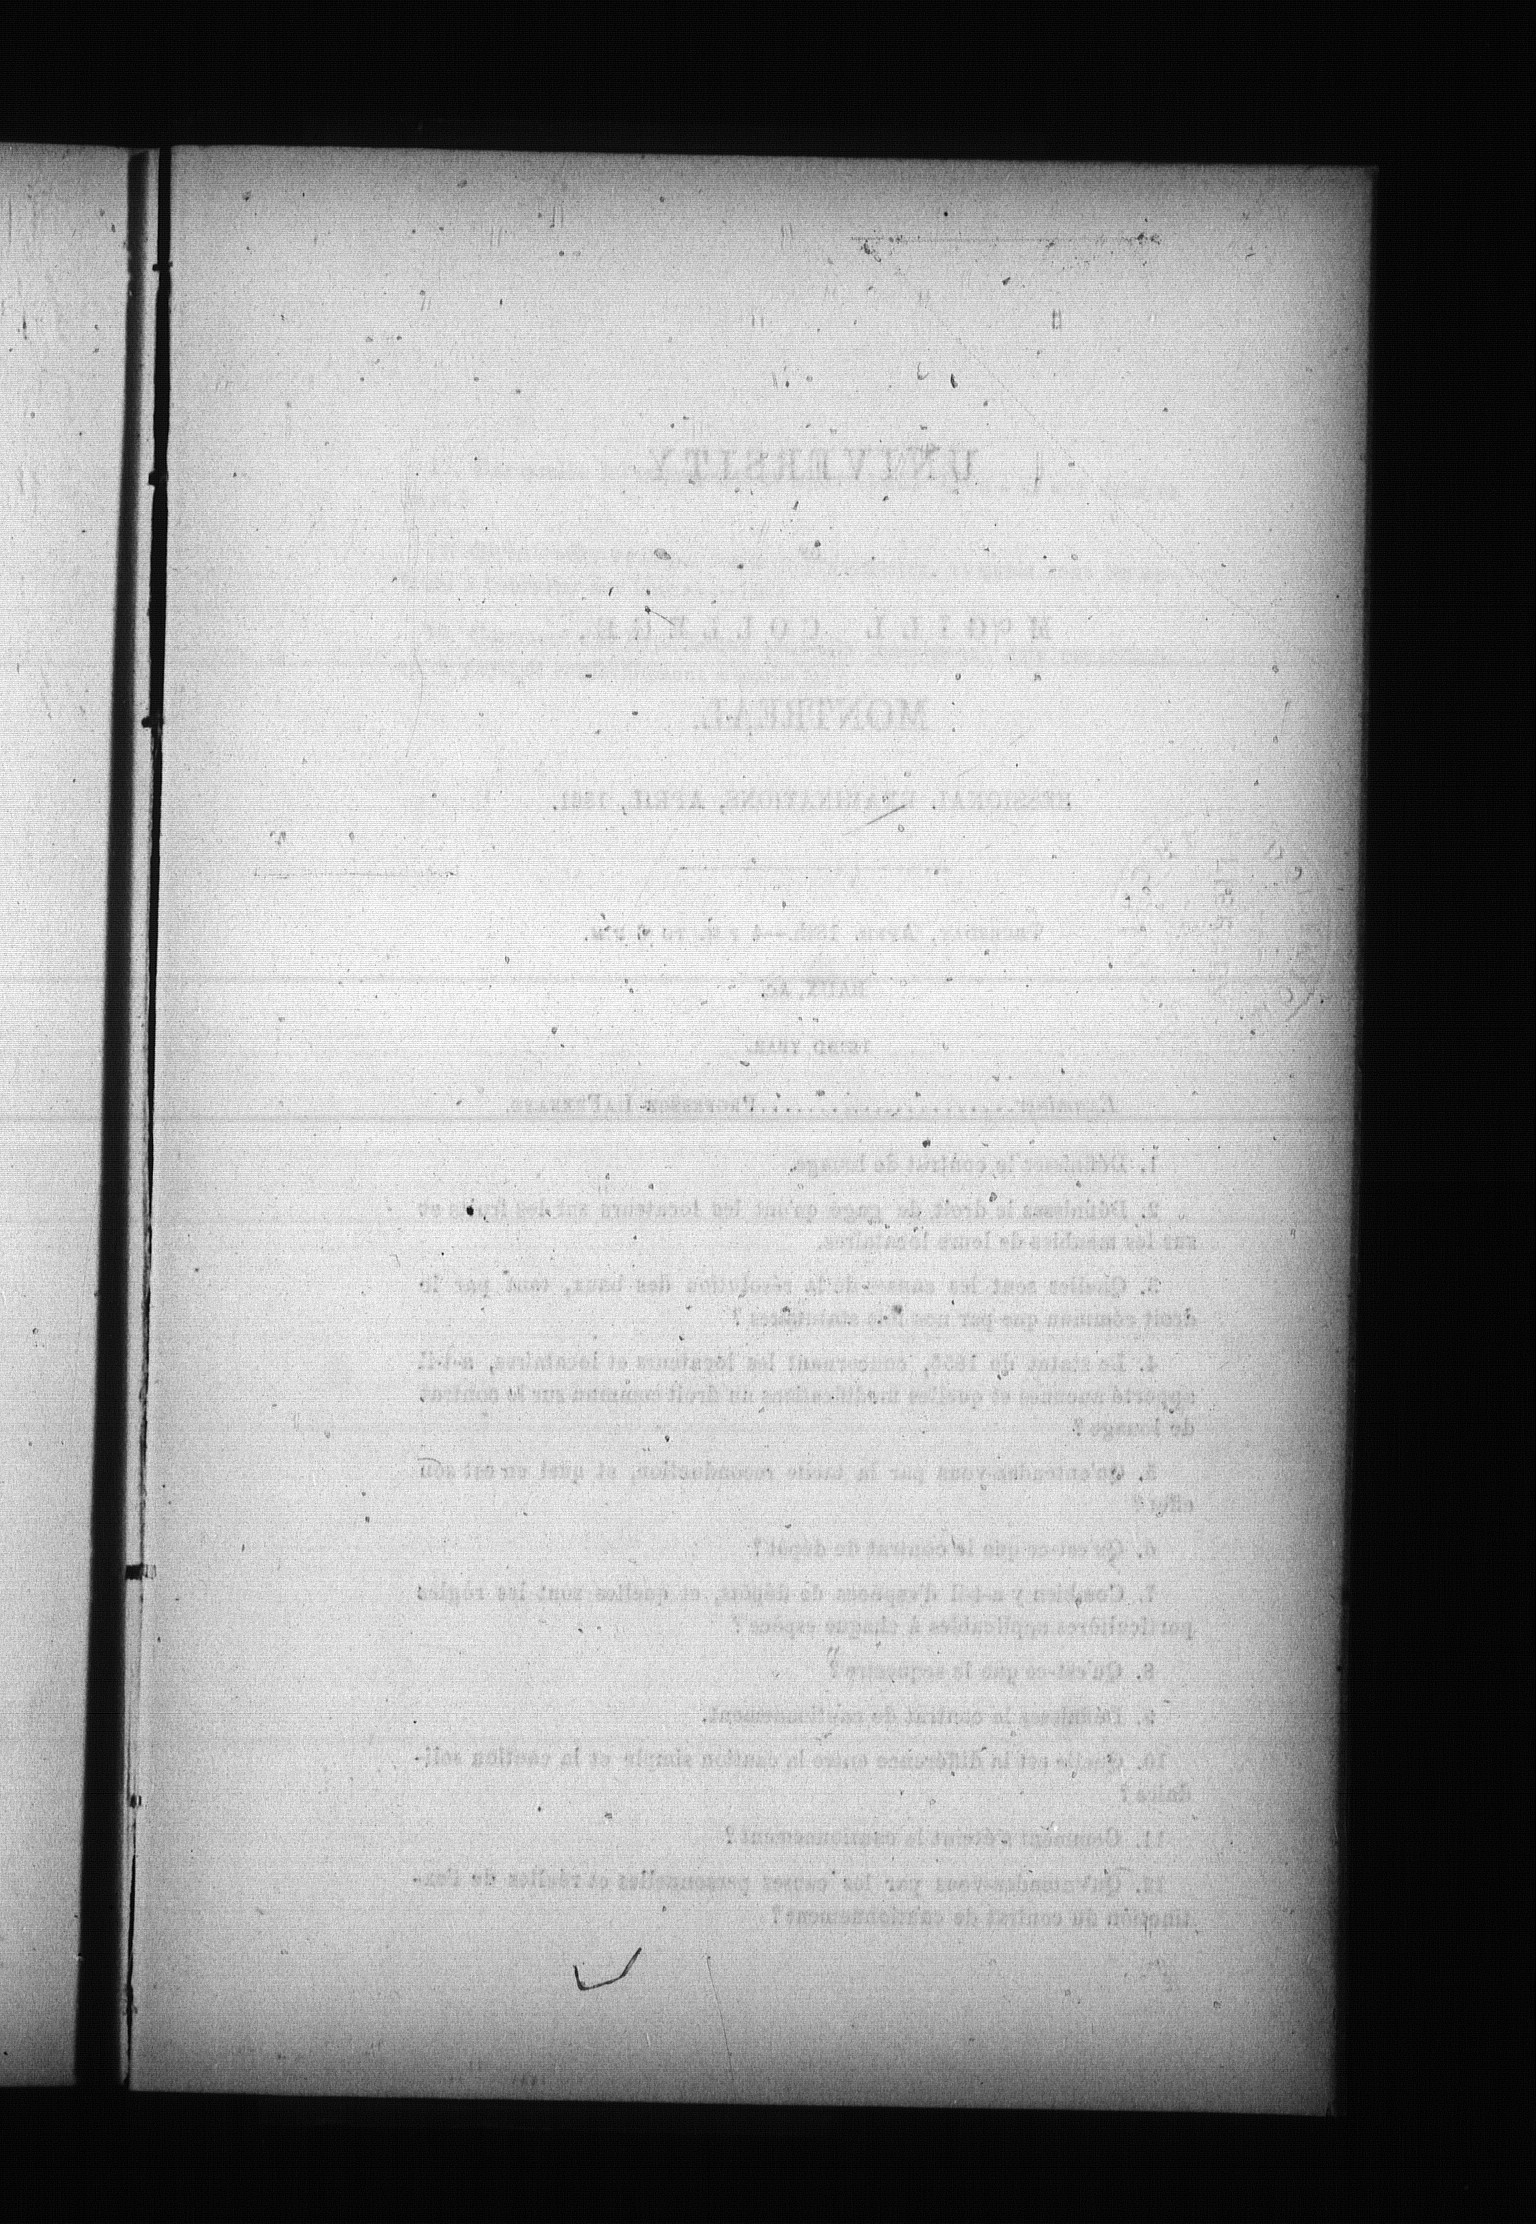 UNIVERSITY
OF
McGILL COLLEGE,
MONTREAL.
SESSIONAL EXAMINATIONS, APRIL, 1861.
THURSDAY, APRIL 18th.—4 P.M. TO 6 P.M.
BAUX, &c.
THIRD YEAR.
Examiner......................PROFESSOR LAFRENAYE.
1. Définissez le contrat de louage.
2. Définissez le droit de gage qu'ont les locateurs sur les fruits et
sur les meubles de leurs locataires.
3. Quelles sont les causes de la résolution des baux, tant par le
droit commun que par nos lois statutaires ?
4. Le statut de 1855, concernant les locateurs et locataires, a-t-il
apporté aucunes et quelles modifications au droit commun sur le contrat
de louage ?
5. Qu'entendez-vous par la tacite reconduction, et quel en est son
effet ?
6. Qu'est-ce que le contrat de dépôt ?
7. Combien y a-t-il d'espèces de dépôts, et quelles sont les règles
particulières applicables à chaque espèce ?
8. Qu'est-ce que le séquestre ?
9. Définissez le contrat de cautionnement.
10. Quelle est la différence entre la caution simple et la caution soli-
daire ?
11. Comment s'éteint le cautionnement ?
12. Qu'entendez-vous par les causes personnelles et réelles de l'ex-
tinction du contrat de cautionnement ?